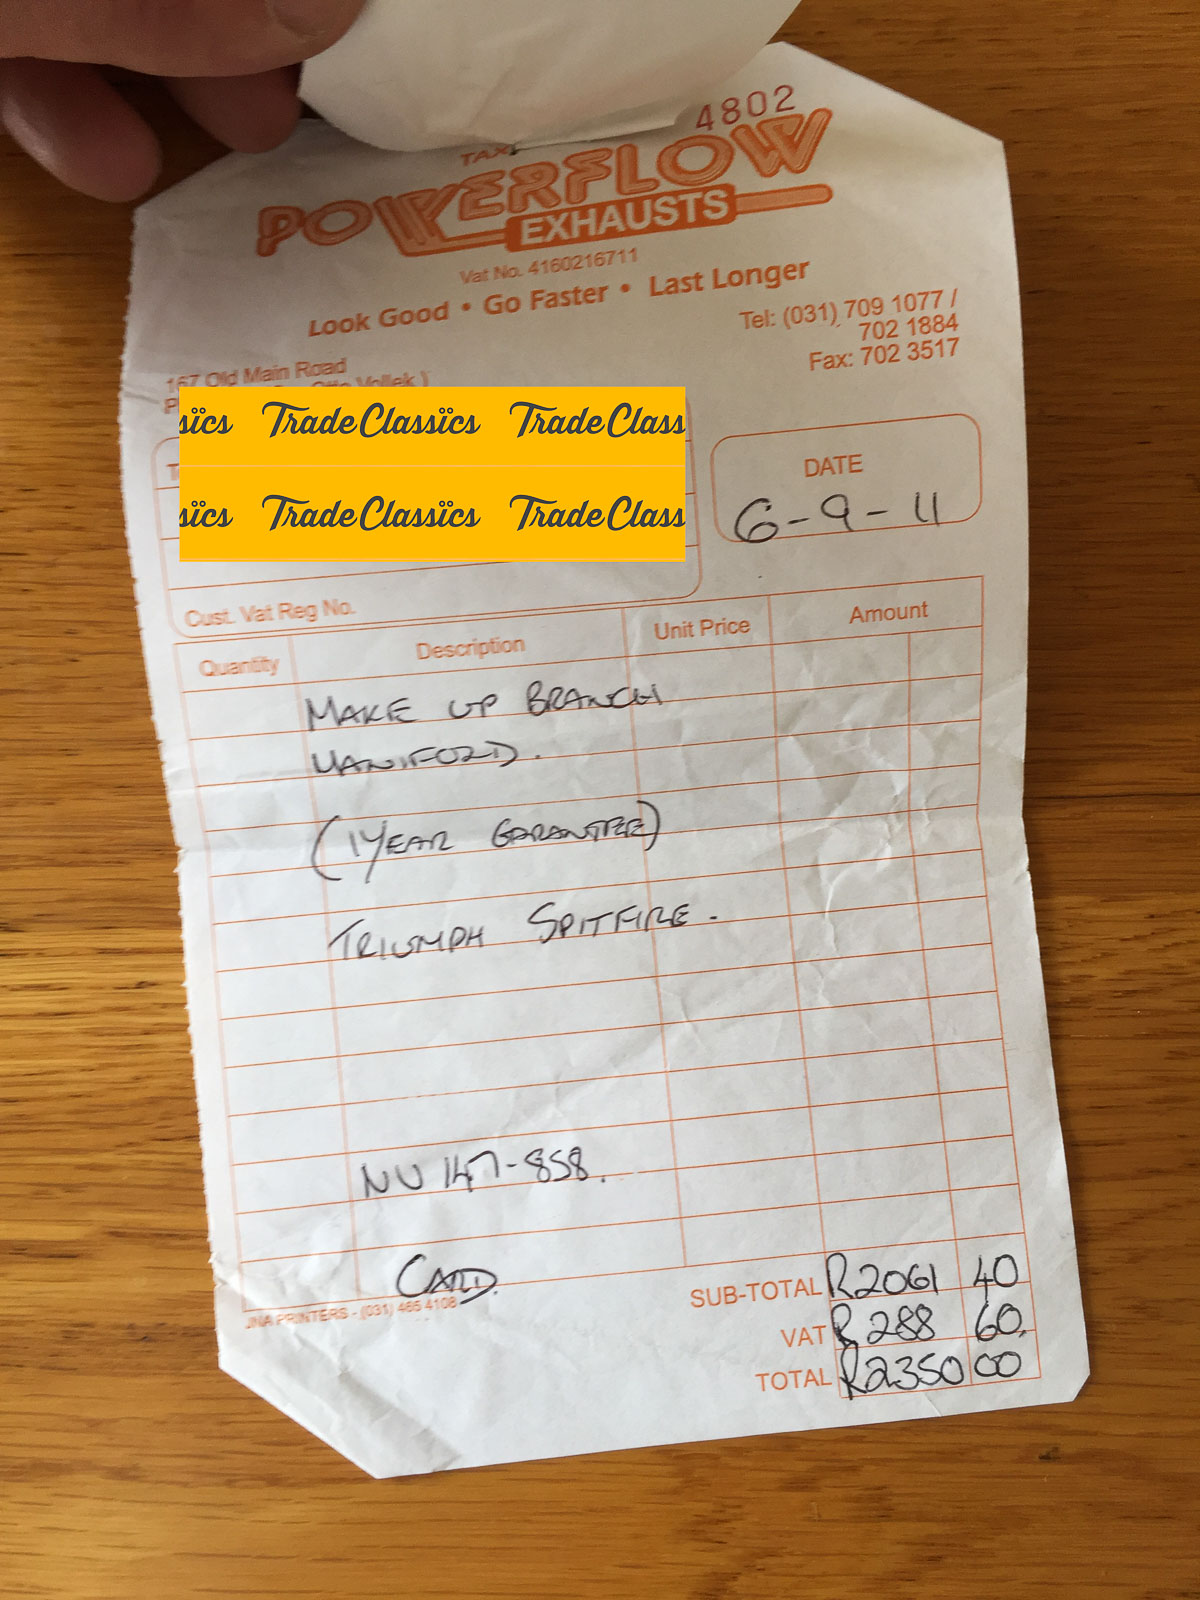 4802
TAX
POWERFLOW
EXHAUSTS
Vat No. 4160216711
Look Good • Go Faster • Last Longer
Tel: (031) 709 1077 /
702 1884
Fax: 702 3517
167 Old Main Road
sïcs TradeClassïcs TradeClass
sïcs TradeClassïcs TradeClass
DATE
6-9-11
Cust. Vat Reg No.
Quantity Description Unit Price Amount
MAKE UP BRANCH
MANIFOLD.
(1 YEAR GARANTEE)
TRIUMPH SPITFIRE.
NU 147-858.
CARD.
JNA PRINTERS - (031) 465 4108
SUB-TOTAL R2061 40
VAT R 288 60.
TOTAL R2350 00